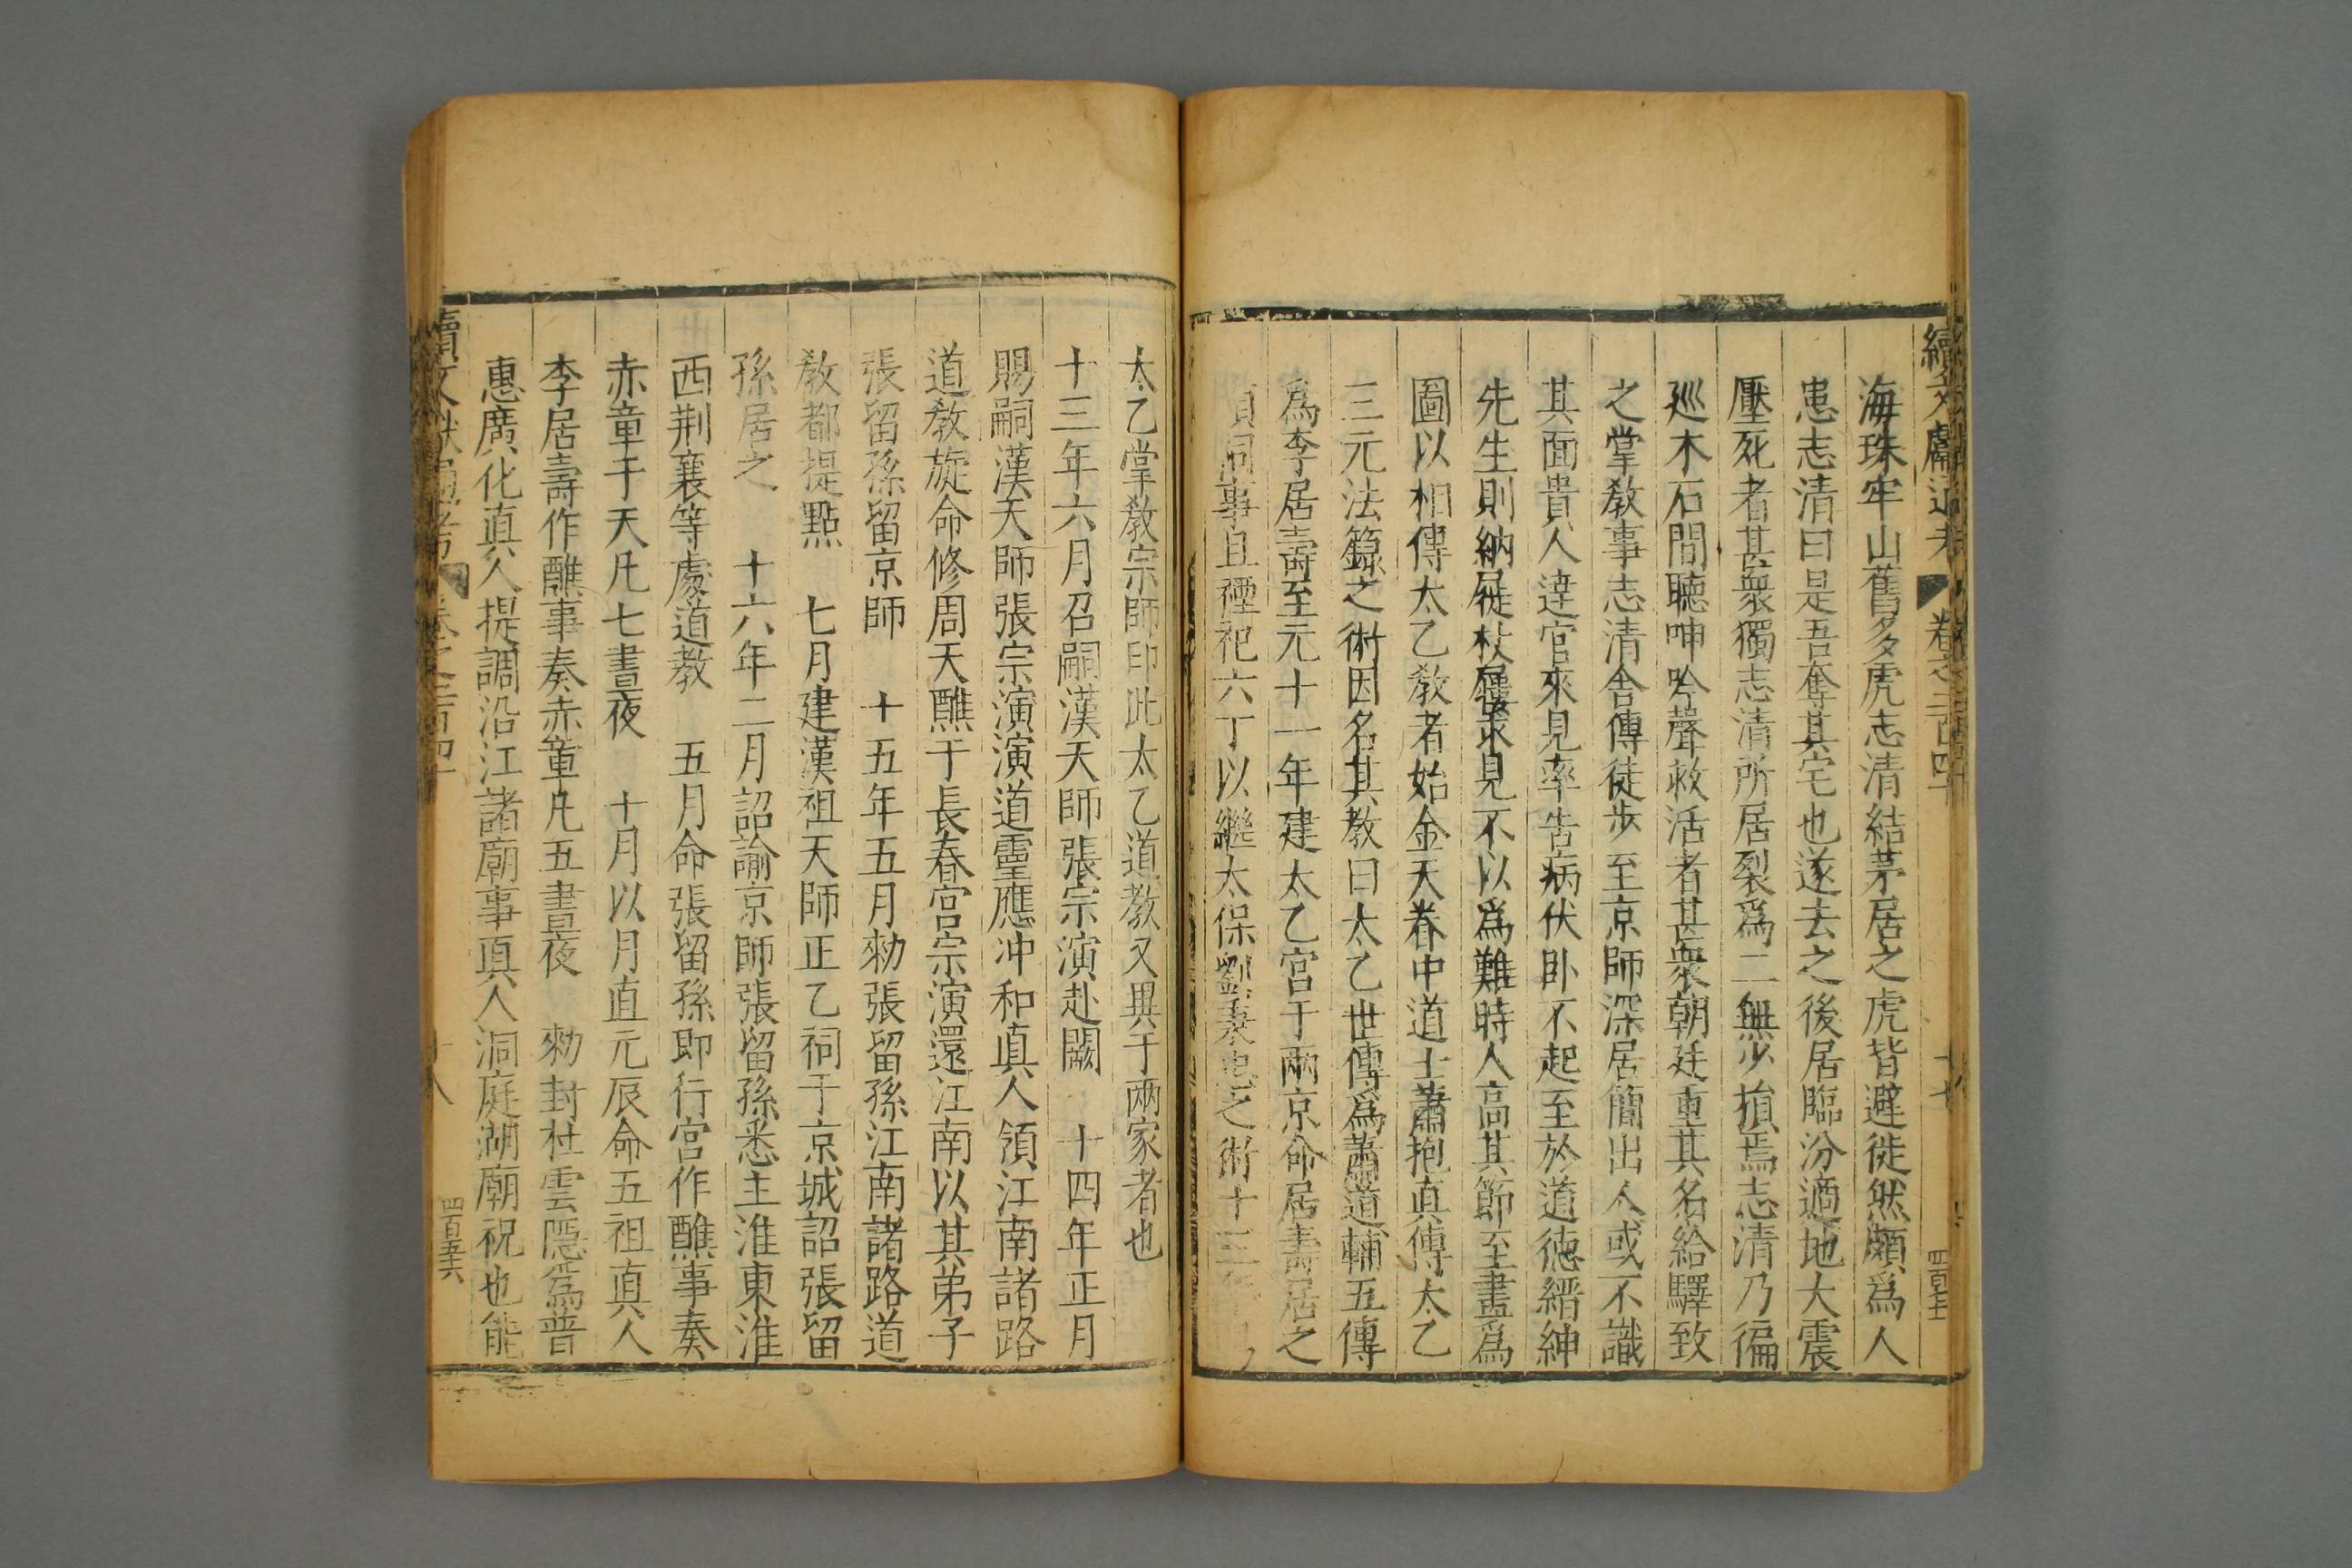 續文獻通考
卷之二百四十
十七
海珠牢山舊多虎志清結茅居之虎皆避徙然頗爲人
患志清曰是吾奪其宅也遂去之後居臨汾適地大震
壓死者甚衆獨志清所居裂爲二無少損焉志清乃徧
廵木石間聽呻吟聲救活者甚衆朝廷重其名給驛致
之掌教事志清舍傳徒步至京師深居簡出人或不識
其面貴人達官來見率告病伏卧不起至於道德縉紳
先生則納屣杖屨求見不以爲難時人高其節至畫爲
圖以相傳太乙教者始金天眷中道士蕭抱真傳太乙
三元法籙之術因名其教曰太乙世傳爲蕭道輔五傳
爲李居壽至元十一年建太乙宮于兩京命居壽居之
領祠事且禋祀六丁以繼太保劉秉忠之術十三年
太乙掌教宗師印此太乙道教又異于兩家者也
十三年六月召嗣漢天師張宗演赴闕　十四年正月
賜嗣漢天師張宗演演道靈應冲和真人領江南諸路
道教旋命修周天醮于長春宮宗演還江南以其弟子
張留孫留京師　十五年五月勑張留孫江南諸路道
教都提點　七月建漢祖天師正乙祠于京城詔張留
孫居之　十六年二月詔諭京師張留孫悉主淮東淮
西荆襄等處道教　五月命張留孫即行宮作醮事奏
赤章于天凡七晝夜　十月以月直元辰命五祖真人
李居壽作醮事奏赤章凡五晝夜　勑封杜雲隱爲普
惠廣化真人提調沿江諸廟事真人洞庭湖廟祝也能
續文獻通考
卷之二百四十
十八
四百五六